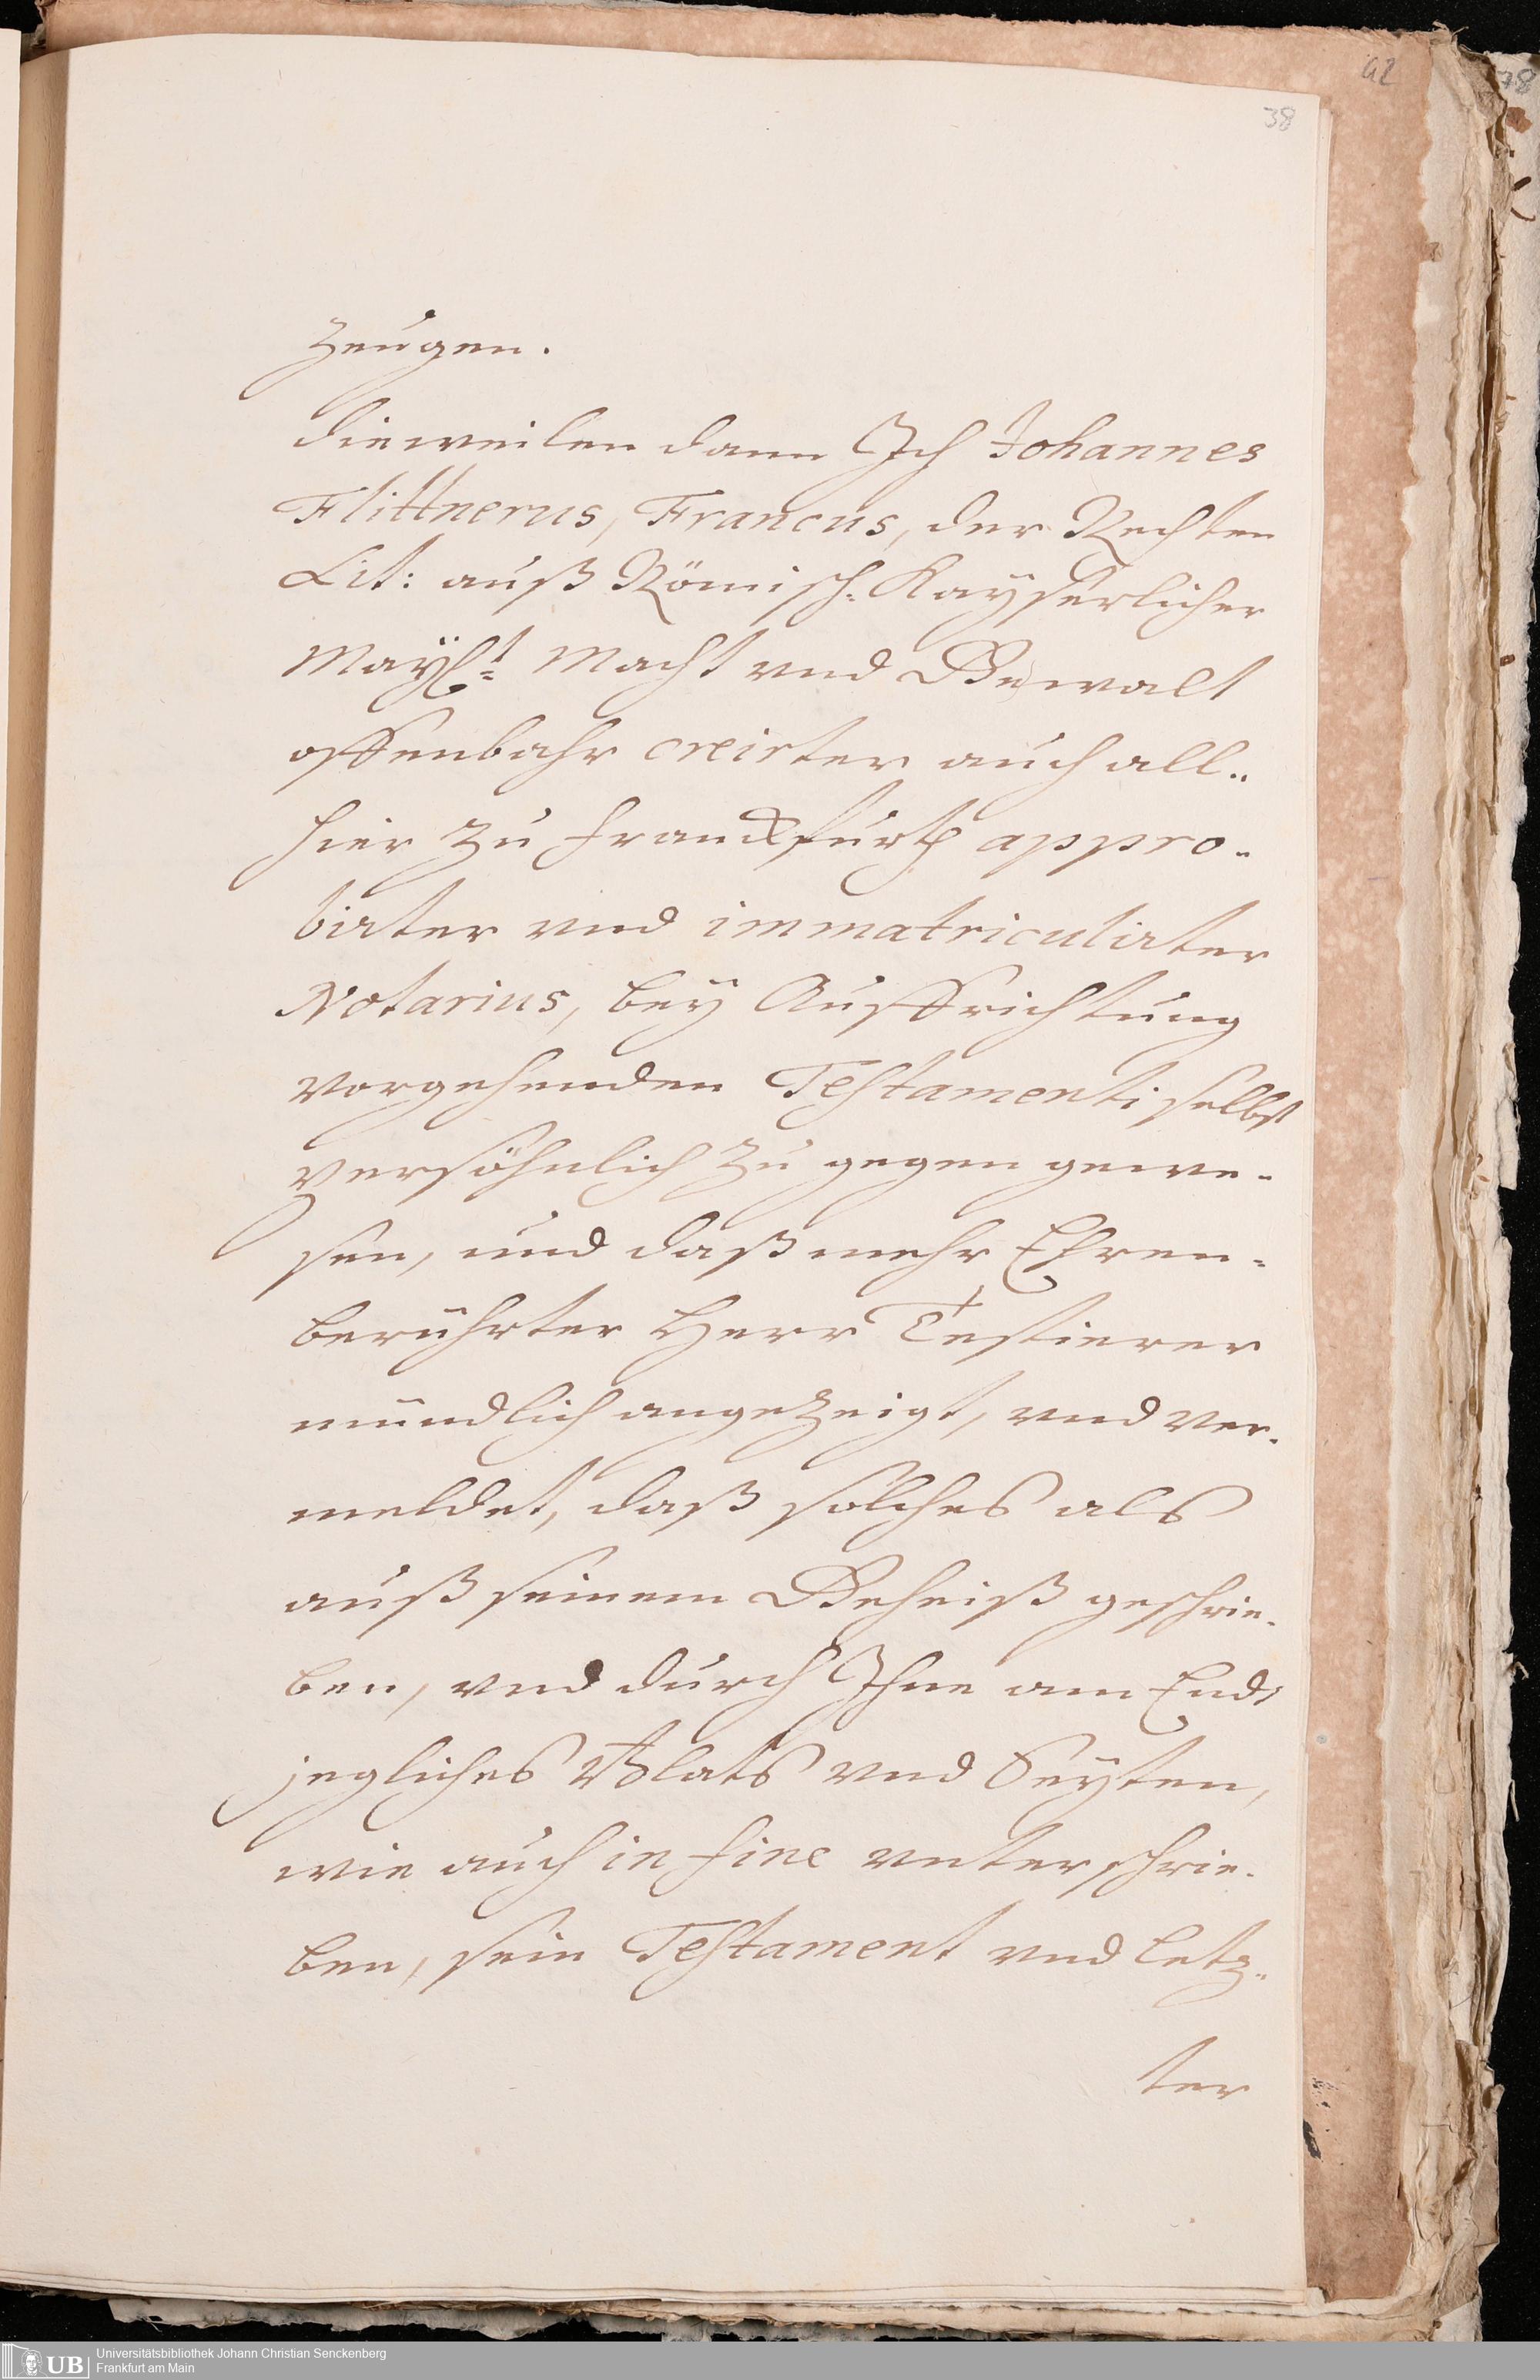 42
78
38
Zeugen.
dieweilen dann Ich Johannes
Flittnerus, Francus, der Rechten
Lit: auß Römisch: Kayserlicher
Mayst: Macht vnd Gewalt
offenbahr creirter auch all-
hier zu franckfurth appro-
birter vnd immatriculirter
Notarius, bey Auffrichtung
vorgehenden Testamenti selbst
persöhnlich zu gegen gewe-
sen, und daß mehr Ehren-
berührter Herr Testierer
mündlich angezeigt, vnd ver-
meldet, daß solches als
auß seinem Geheiß geschrie-
ben, vnd durch Ihne am End
jegliches Blats vnd Seyten,
wie auch in fine unterschrie-
ben, sein Testament vnd letz-
ter
UB
Universitätsbibliothek Johann Christian Senckenberg
Frankfurt am Main